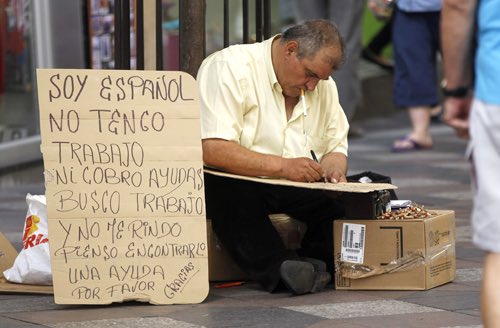 SOY ESPAÑOL
NO TENGO
TRABAJO
NI COBRO AYUDAS
BUSCO TRABAJO
Y NO ME RINDO
PIENSO ENCONTRARLO
UNA AYUDA
POR FAVOR GRACIAS